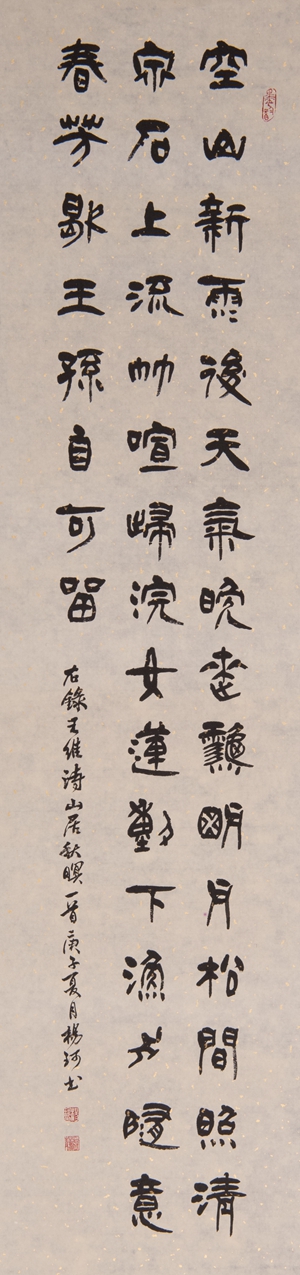 空山新雨後天氣晚來秋明月松間照清
泉石上流竹喧歸浣女蓮動下漁舟隨意
春芳歇王孫自可留
右錄王維詩山居秋暝一首庚子夏月楊河書